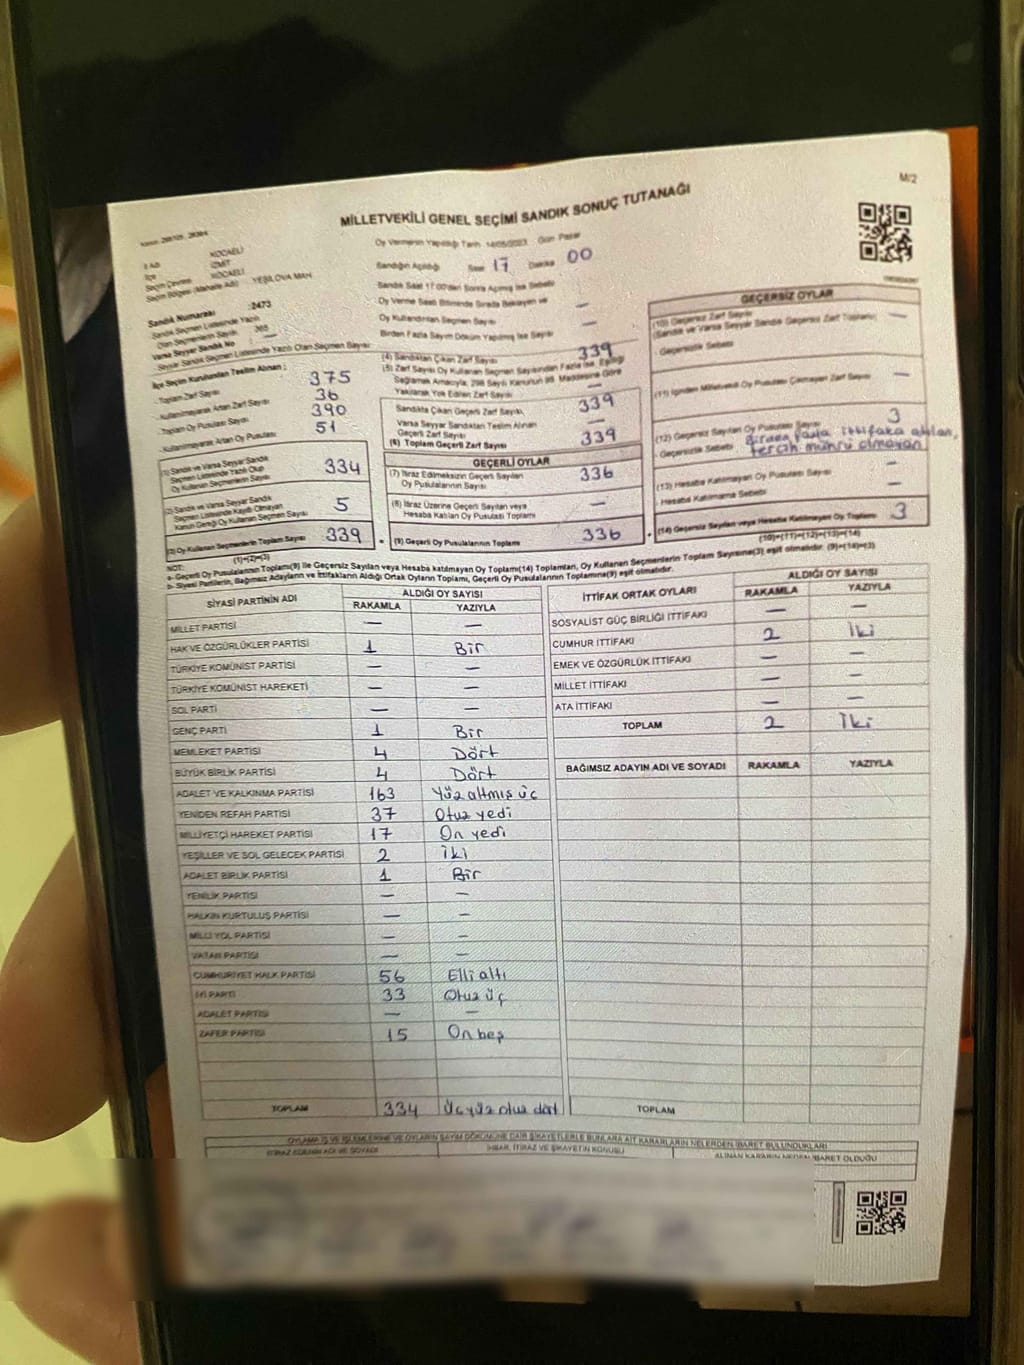 M/2
MİLLETVEKİLİ GENEL SEÇİMİ SANDIK SONUÇ TUTANAĞI
İl Adı KOCAELİ
İlçe İZMİT
Seçim Çevresi KOCAELİ
Seçim Bölgesi (Mahalle Adı) YEŞİLOVA MAH
Sandık Numarası : 2473
Sandık Seçmen Listesinde Yazılı
Olan Seçmenlerin Sayısı : 365
Varsa Seyyar Sandık No : —
Seyyar Sandık Seçmen Listesinde Yazılı Olan Seçmen Sayısı:
Oy Vermenin Yapıldığı Tarih 14/05/2023 Gün Pazar
Sandığın Açıldığı Saat 17 Dakika 00
Sandık Saat 17:00'den Sonra Açılmış İse Sebebi
Oy Verme Saati Bitiminde Sırada Bekleyen ve
Oy Kullandırılan Seçmen Sayısı —
Birden Fazla Sayım Döküm Yapılmış İse Sayısı —
İlçe Seçim Kurulundan Teslim Alınan ;
Toplam Zarf Sayısı 375
Kullanılmayarak Artan Zarf Sayısı 36
Toplam Oy Pusulası Sayısı 390
Kullanılmayarak Artan Oy Pusulası 51
(1) Sandık ve Varsa Seyyar Sandık
Seçmen Listesinde Yazılı Olup
Oy Kullanan Seçmenlerin Sayısı 334
(2) Sandık ve Varsa Seyyar Sandık
Seçmen Listesinde Kayıtlı Olmayan
Kanun Gereği Oy Kullanan Seçmen Sayısı 5
(3) Oy Kullanan Seçmenlerin Toplam Sayısı 339
(1)+(2)=(3)
(4) Sandıktan Çıkan Zarf Sayısı 339
(5) Zarf Sayısı Oy Kullanan Seçmen Sayısından Fazla İse, Eşitliği
Sağlamak Amacıyla, 298 Sayılı Kanunun 98. Maddesine Göre
Yakılarak Yok Edilen Zarf Sayısı —
Sandıkta Çıkan Geçerli Zarf Sayısı, 339
Varsa Seyyar Sandıktan Teslim Alınan
Geçerli Zarf Sayısı —
(6) Toplam Geçerli Zarf Sayısı 339
GEÇERLİ OYLAR
(7) İtiraz Edilmeksizin Geçerli Sayılan
Oy Pusulalarının Sayısı 336
(8) İtiraz Üzerine Geçerli Sayılan veya
Hesaba Katılan Oy Pusulası Toplamı —
(9) Geçerli Oy Pusulalarının Toplamı 336
GEÇERSİZ OYLAR
(10) Geçersiz Zarf Sayısı
(Sandık ve Varsa Seyyar Sandık Geçersiz Zarf Toplamı) —
Geçersizlik Sebebi
(11) İçinden Milletvekili Oy Pusulası Çıkmayan Zarf Sayısı —
(12) Geçersiz Sayılan Oy Pusulası Sayısı 3
Geçersizlik Sebebi Birden fazla ittifaka atılan,
tercih mührü olmayan
(13) Hesaba Katılmayan Oy Pusulası Sayısı —
Hesaba Katılmama Sebebi —
(14) Geçersiz Sayılan veya Hesaba Katılmayan Oy Toplamı 3
(10)+(11)+(12)+(13)=(14)
NOT:
a- Geçerli Oy Pusulalarının Toplamı(9) ile Geçersiz Sayılan veya Hesaba katılmayan Oy Toplamı(14) Toplamları, Oy Kullanan Seçmenlerin Toplam Sayısına(3) eşit olmalıdır. (9)+(14)=(3)
b- Siyasi Partilerin, Bağımsız Adayların ve İttifakların Aldığı Ortak Oyların Toplamı, Geçerli Oy Pusulalarının Toplamına(9) eşit olmalıdır.
SİYASİ PARTİNİN ADI ALDIĞI OY SAYISI
RAKAMLA YAZIYLA
MİLLET PARTİSİ — —
HAK VE ÖZGÜRLÜKLER PARTİSİ 1 Bir
TÜRKİYE KOMÜNİST PARTİSİ — —
TÜRKİYE KOMÜNİST HAREKETİ — —
SOL PARTİ — —
GENÇ PARTİ 1 Bir
MEMLEKET PARTİSİ 4 Dört
BÜYÜK BİRLİK PARTİSİ 4 Dört
ADALET VE KALKINMA PARTİSİ 163 Yüz altmış üç
YENİDEN REFAH PARTİSİ 37 Otuz yedi
MİLLİYETÇİ HAREKET PARTİSİ 17 On yedi
YEŞİLLER VE SOL GELECEK PARTİSİ 2 İki
ADALET BİRLİK PARTİSİ 1 Bir
YENİLİK PARTİSİ — —
HALKIN KURTULUŞ PARTİSİ — —
MİLLİ YOL PARTİSİ — —
VATAN PARTİSİ — —
CUMHURİYET HALK PARTİSİ 56 Elli altı
İYİ PARTİ 33 Otuz üç
ADALET PARTİSİ — —
ZAFER PARTİSİ 15 On beş
TOPLAM 334 Üçyüz otuz dört
İTTİFAK ORTAK OYLARI ALDIĞI OY SAYISI
RAKAMLA YAZIYLA
SOSYALİST GÜÇ BİRLİĞİ İTTİFAKI — —
CUMHUR İTTİFAKI 2 İki
EMEK VE ÖZGÜRLÜK İTTİFAKI — —
MİLLET İTTİFAKI — —
ATA İTTİFAKI — —
TOPLAM 2 İki
BAĞIMSIZ ADAYIN ADI VE SOYADI RAKAMLA YAZIYLA
TOPLAM
OYLAMA İŞ VE İŞLEMLERİNE VE OYLARIN SAYIM DÖKÜMÜNE DAİR ŞİKAYETLERLE BUNLARA AİT KARARLARIN NELERDEN İBARET BULUNDUKLARI
İTİRAZ EDENİN ADI VE SOYADI İHBAR, İTİRAZ VE ŞİKAYETİN KONUSU ALINAN KARARIN NEDEN İBARET OLDUĞU